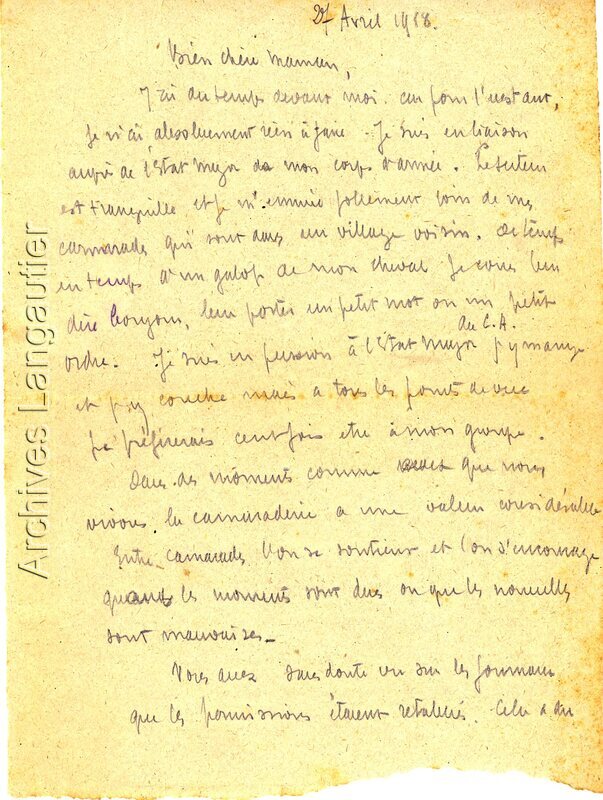 27 Avril 1918.
Bien chère maman,
J'ai du temps devant moi. car pour l'instant,
Je n'ai absolument rien à faire. Je suis en liaison
auprès de l'Etat Major de mon corps d'armée. Le secteur
est tranquille et je m'ennuie follement loin de mes
camarades qui sont dans un village voisin. de temps
en temps d'un galop de mon cheval Je cours leur
dire bonjour, leur porter un petit mot ou un petit
ordre. Je suis en pension à l'Etat Major du C.A. j'y mange
et j'y couche mais a tous les points de vue
je préfèrerais cent fois etre à mon groupe.
Dans des moments comme que nous
vivons. la camaraderie a une valeur considérable
Entre camarades l'on se soutient et l'on s'encourage
quand les moments sont durs ou que les nouvelles
sont mauvaises_
Vous avez sans doute vu sur les journaux
que les permissions étaient rétablies. Cela a du
Archives Langautier